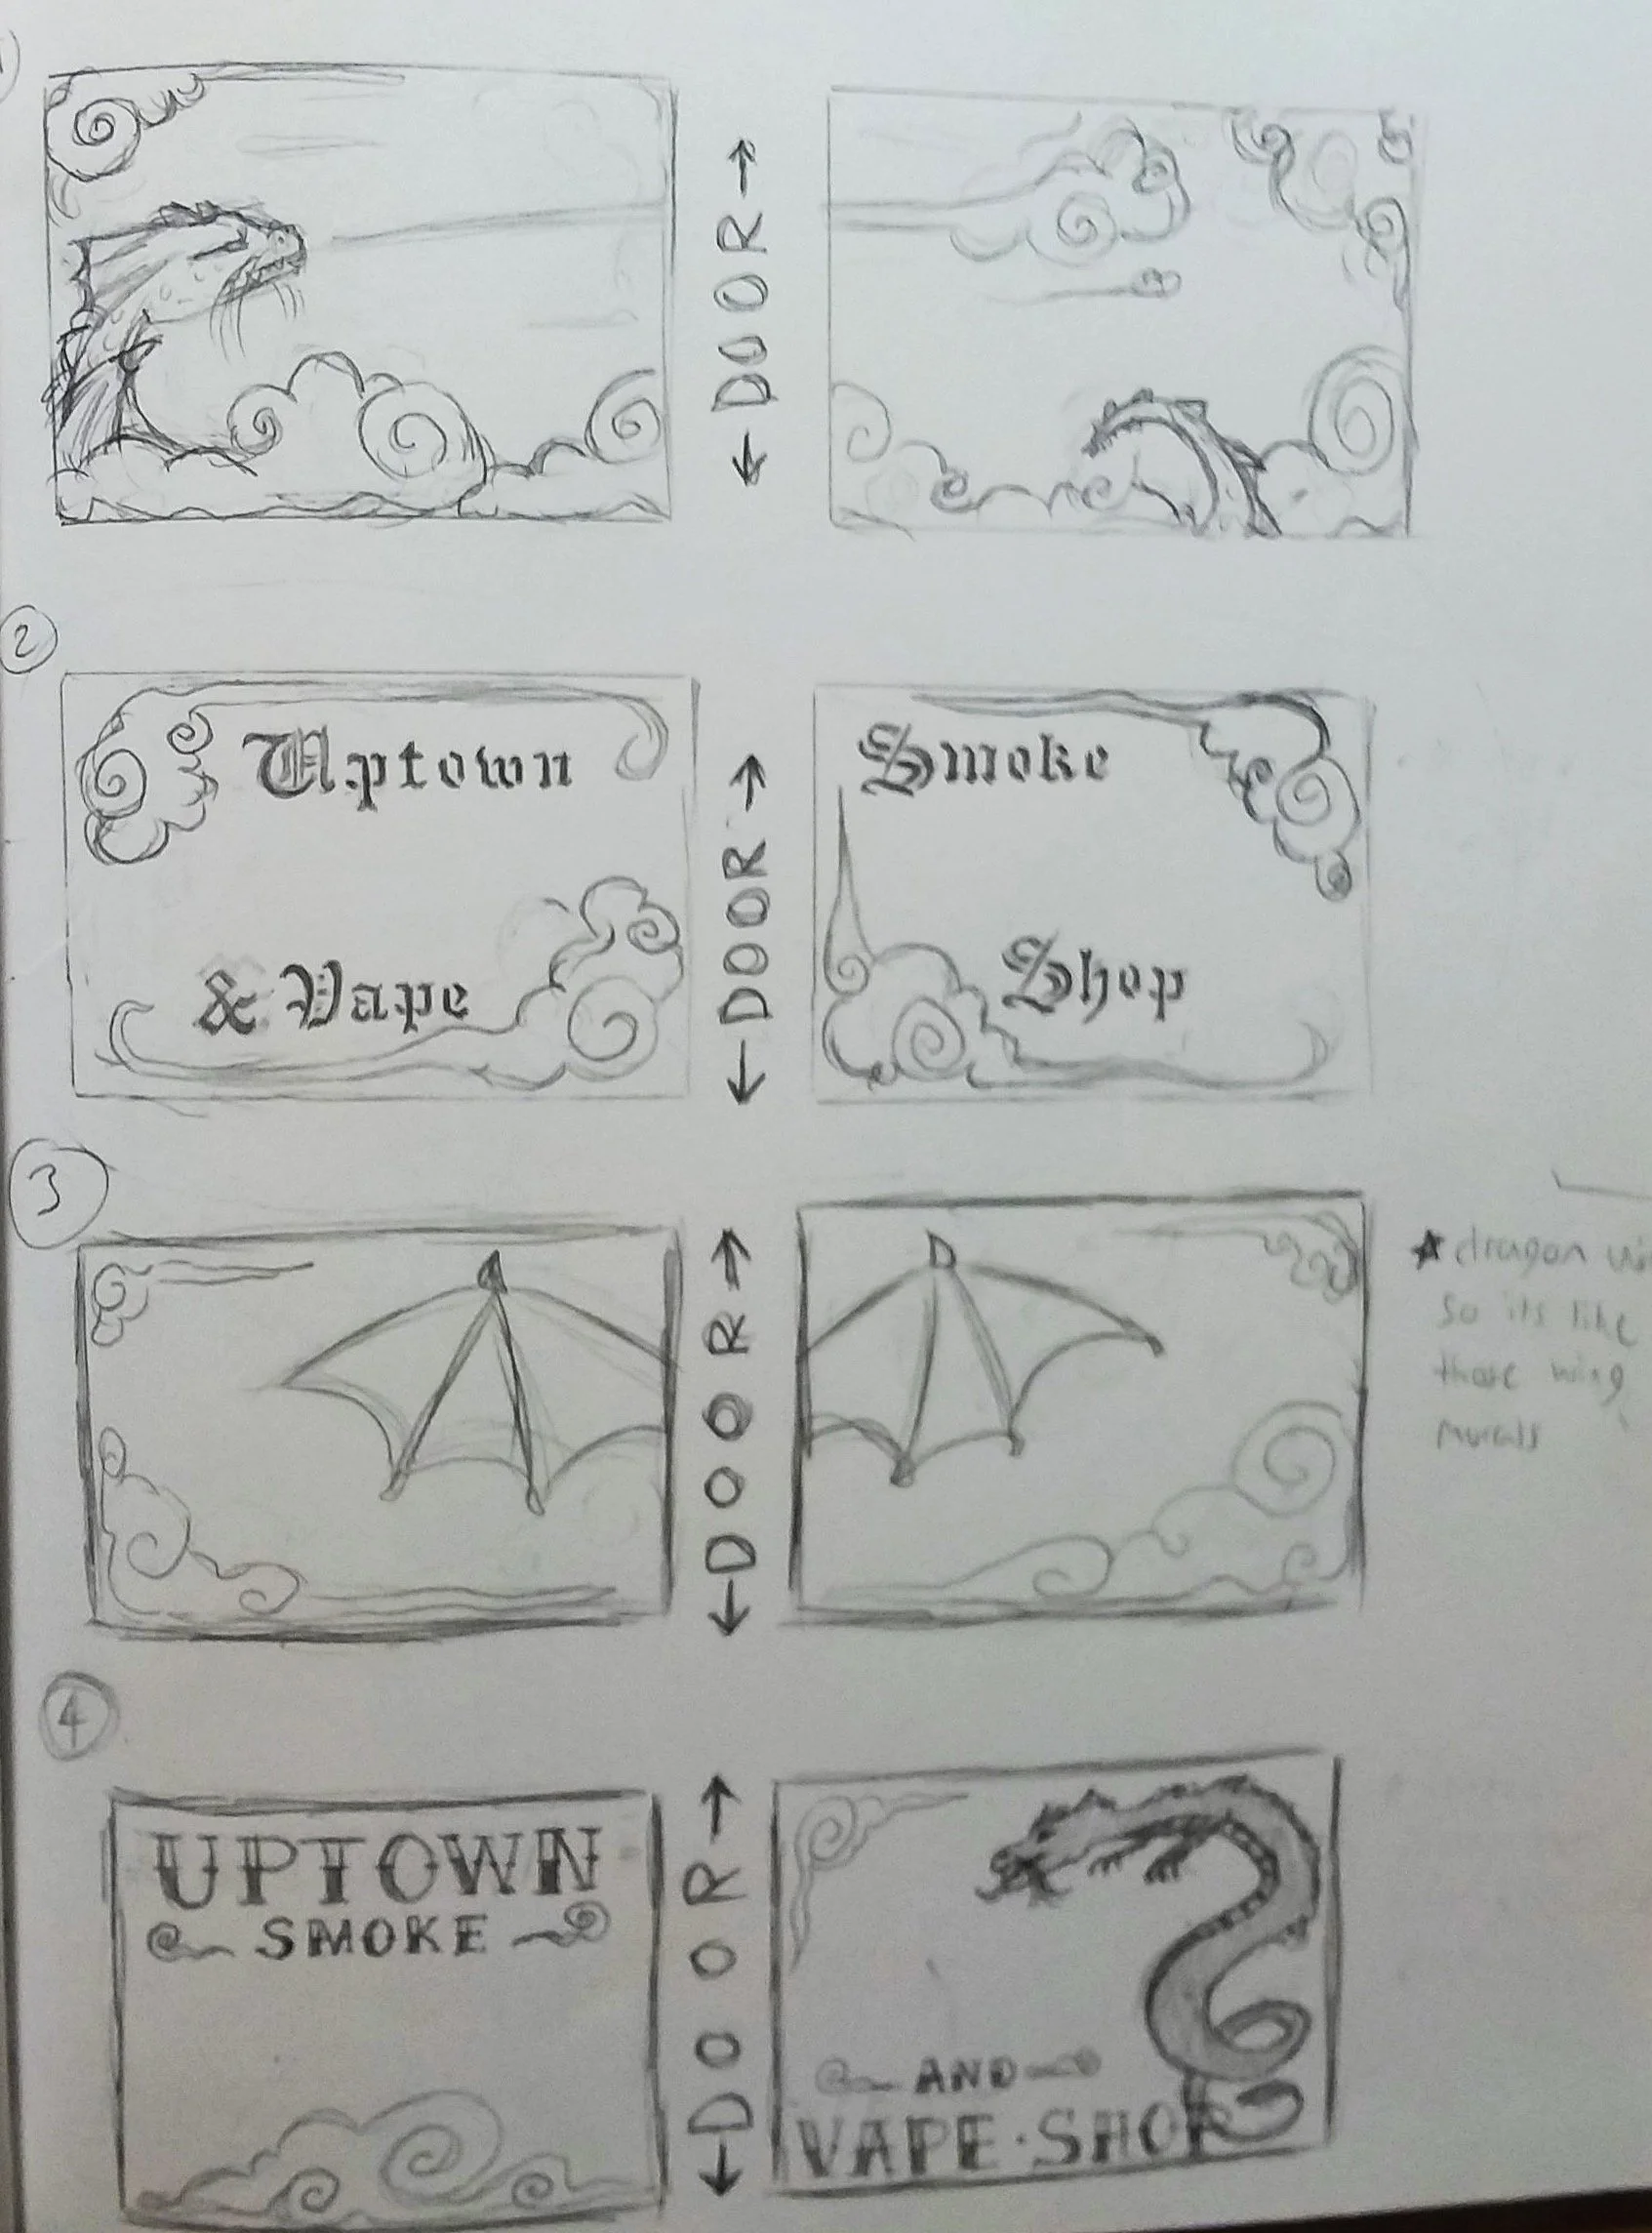 1
← DOOR →
2
Uptown
Smoke
& Vape
Shop
← DOOR →
3
← DOOR →
★ dragon
so its like
those wing
murals
4
UPTOWN
SMOKE
← DOOR →
AND
VAPE · SHOP